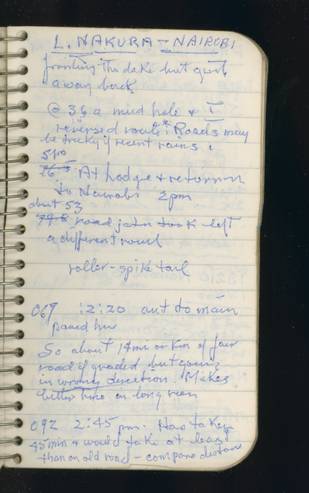 L. NAKURA - NAIROBI
fronting the lake but quit
away back
@ 36 a mud hole & I
reversed route: Roads may
be tricky if recent rains.
5100
At Lodge & return
to Nairobi 2pm
about 53
road join took left
a different road
roller - spike tail
069 :2:20 out to main
paved hw
So about 14mi or Km of fair
road if graded but going
in wrong direction. Makes
better time on long run
092 2:45 pm. How to key
45 min & would take at leas
than on old road - compare distan